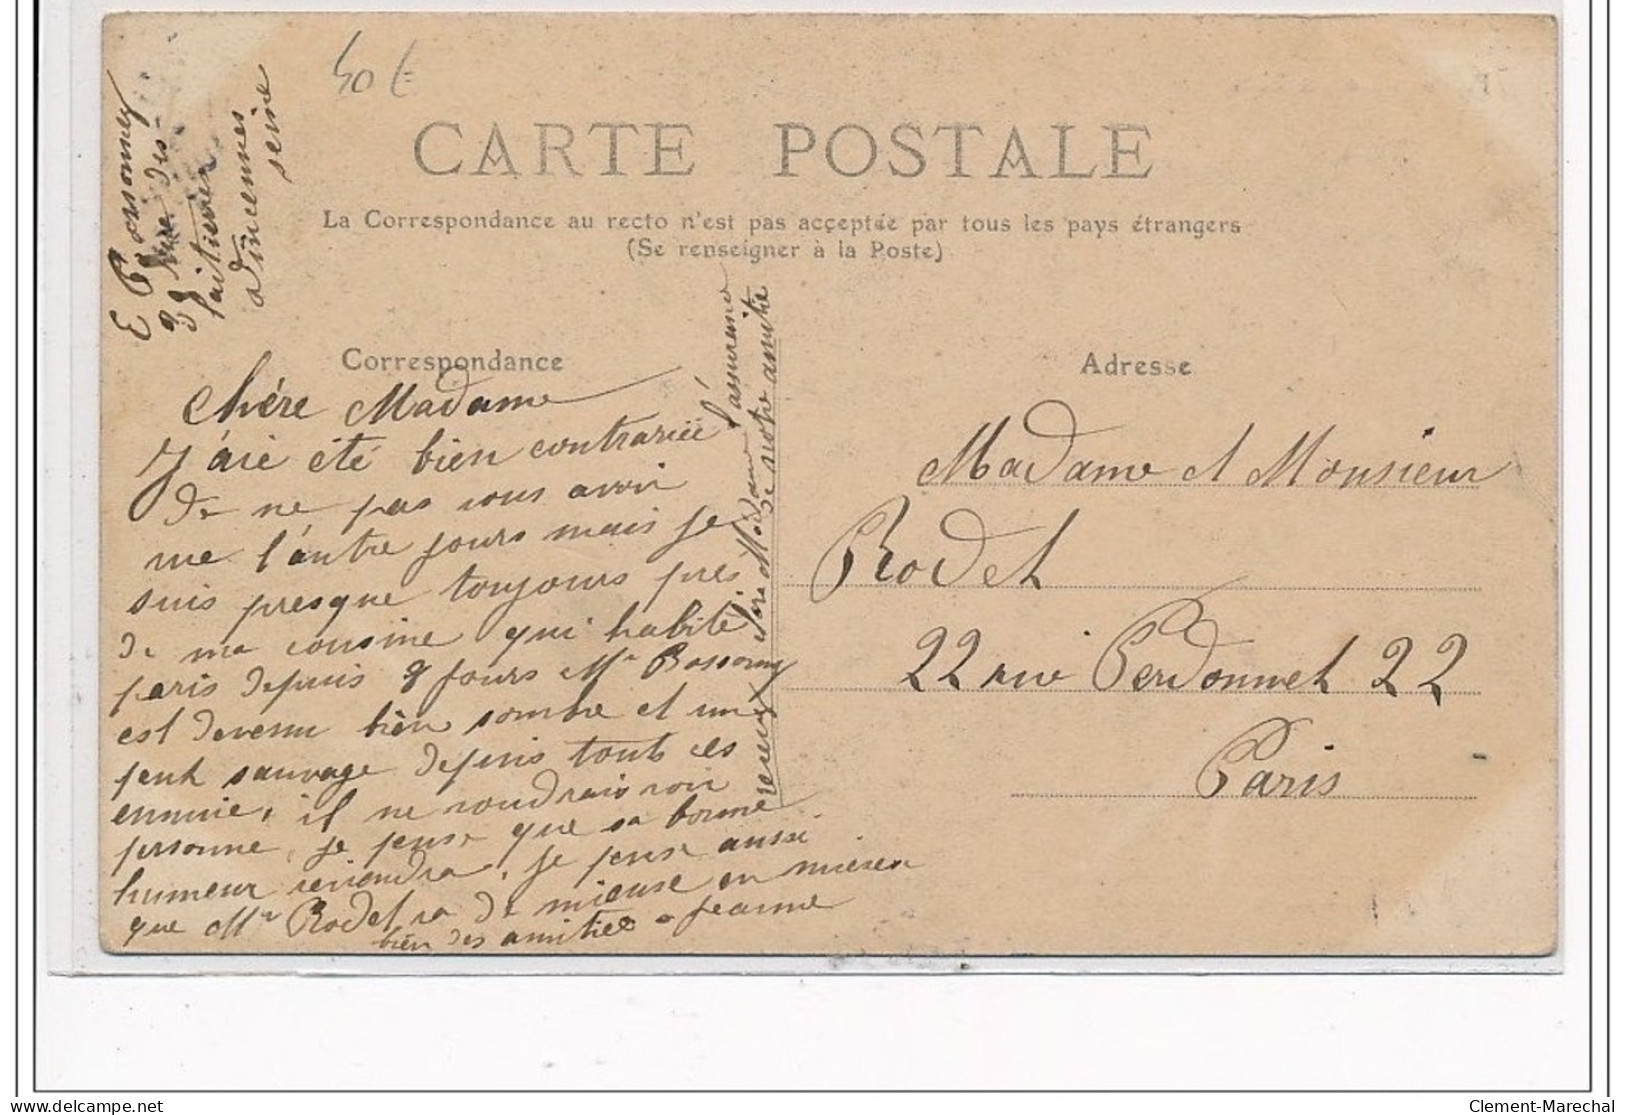 40 €
E Bossonney
38 Rue des
laitieres
a Vincennes
seine
CARTE POSTALE
La Correspondance au recto n'est pas acceptée par tous les pays étrangers
(Se renseigner à la Poste)
Correspondance
Adresse
Chére Madame
J'aie été bien contrariéé
de ne pas vous avoir
vue l'autre jours mais je
suis presque toujours pres
de ma cousine qui habite
paris depuis 8 jours Mr Bossonney
est devenu bien sombre et un
peut sauvage depuis touts ces
ennuie, il ne voudrais voir
personne, je pense que sa bonne
humeur reviendra, je pense aussi
que Mr Rodet va de mieuse en mieux
bien des amitiés Jeanne
recevez chère Madame l'assurance
de notre amitie
Madame et Monsieur
Rodet
22 rue Perdonnet 22
Paris
Clement-Marechal